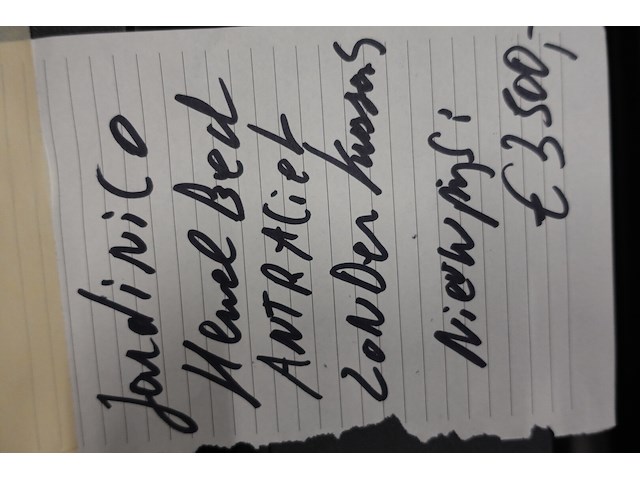 JardiNiCo
Hemel Bed
ANTRACieT
ZoNDer kussens
Nieuwprijs:
€ 3500,-